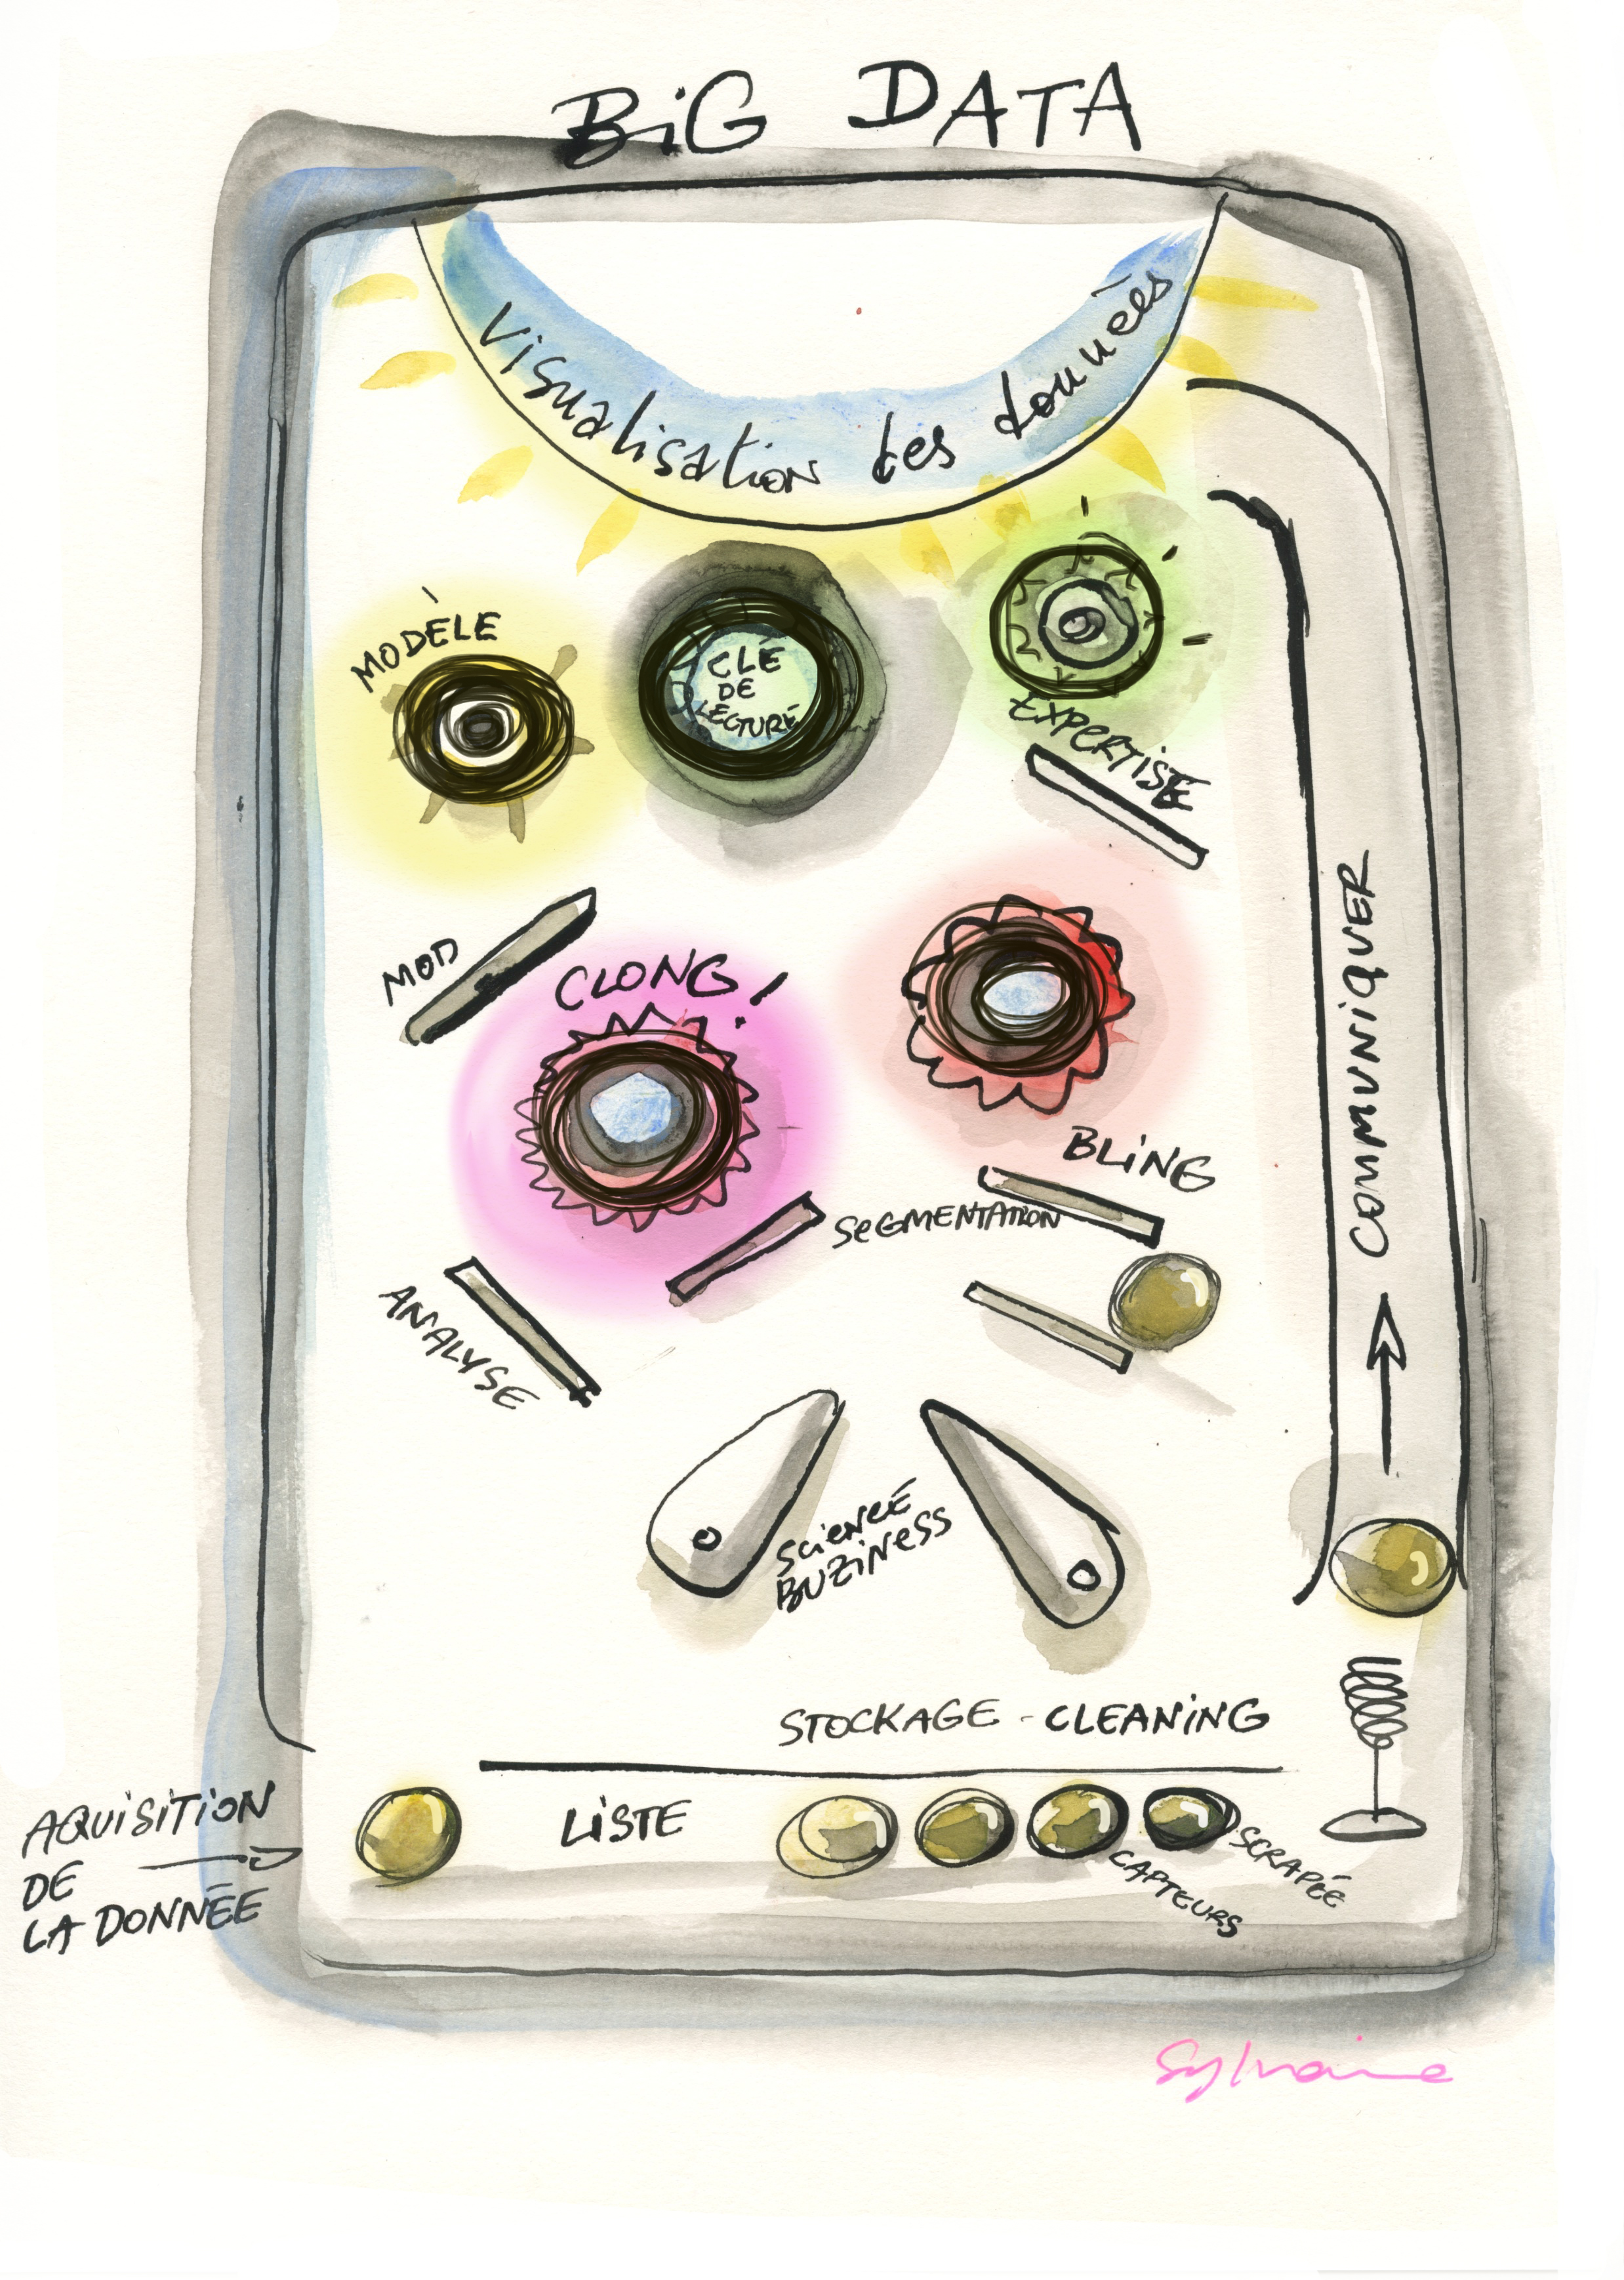 BiG DATA
Visualisation des données
MODÈLE
CLÉ
DE
LECTURE
EXPERTISE
MOD
CLONG!
BLiNG
SEGMENTATION
ANALYSE
COMMUNiQUER
SCiENCE
BUZiNESS
STOCKAGE - CLEANiNG
AQUiSiTiON
DE
LA DONNÉE
LiSTE
CAPTEURS
SCRAPÉE
Sylvaine